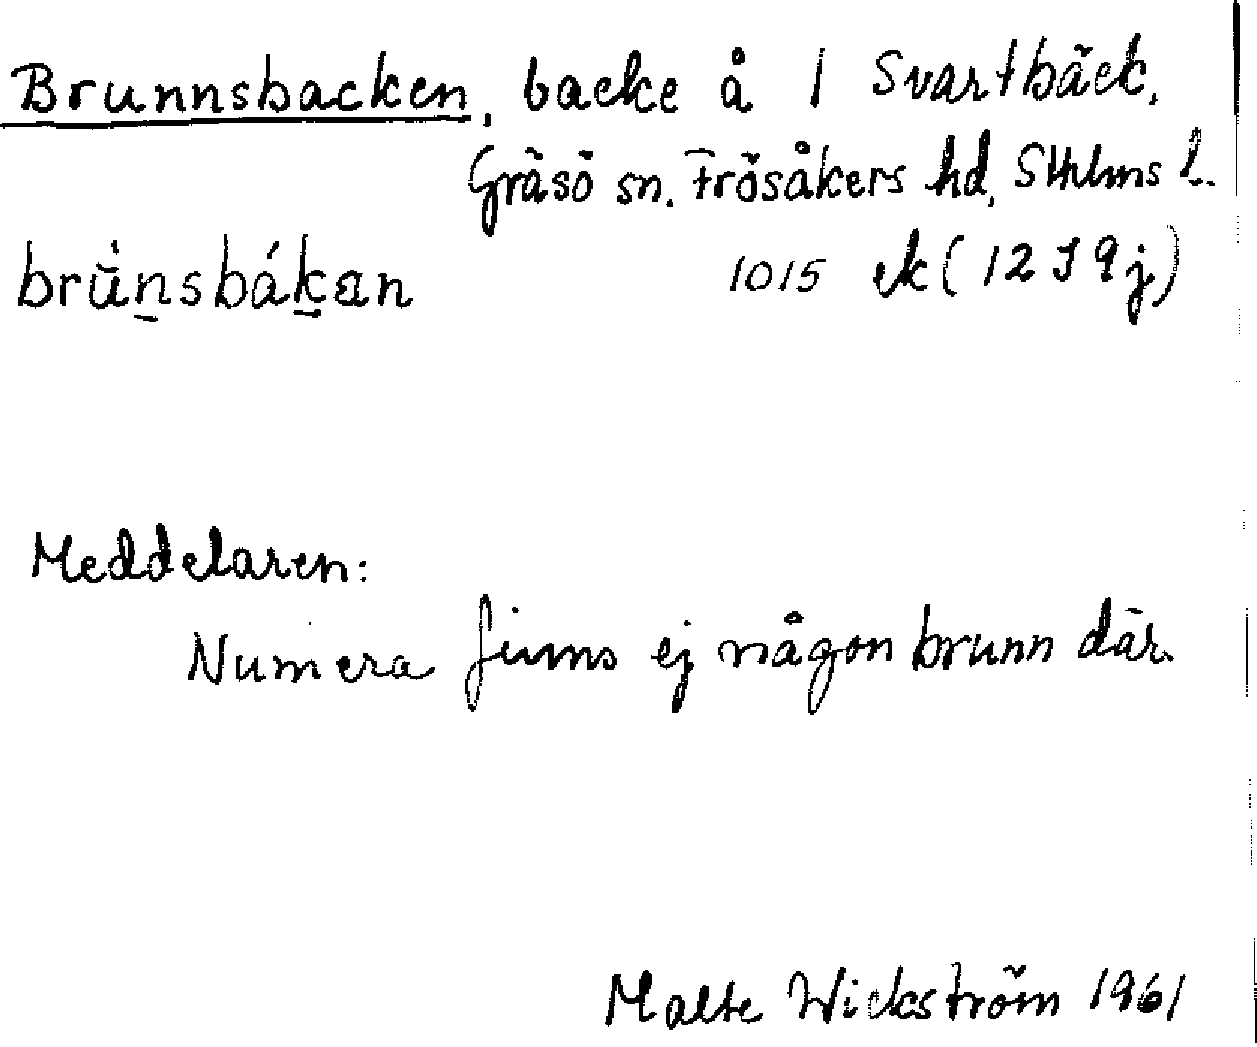 Brunnsbacken, backe å 1 Svartbäck,
Gräsö sn. Frösåkers hd, Sthlms l.
brùnsbákan 1015 ek (12 I 9 j)
Meddelaren:
Numera finns ej någon brunn där.
Malte Wickström 1961